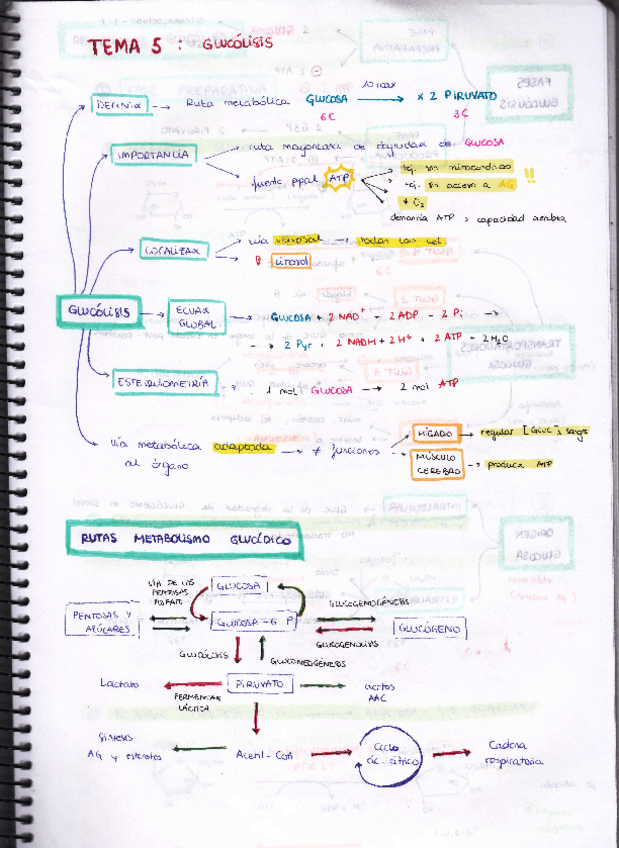 TEMA 5 : GLUCÓLISIS
DEFINIR → Ruta metabólica GLUCOSA 10 reacc → x 2 PIRUVATO
6C 3C
IMPORTANCIA
ruta mayoritaria de degradar de GLUCOSA
fuente ppal ATP
en mitocondrias
acceso a AG !!
+ O2
demanda ATP > capacidad aerobia
LOCALIZAR
vía universal → todas las cél.
citosol
GLUCÓLISIS → ECUAC GLOBAL → GLUCOSA + 2 NAD+ + 2 ADP + 2 Pi →
→ 2 Pyr + 2 NADH + 2 H+ + 2 ATP + 2 H2O
ESTEQUIOMETRÍA → 1 mol GLUCOSA → 2 mol ATP
Vía metabólica adaptada al órgano → ≠ funciones
HÍGADO → regular [GLUC] sangre
MÚSCULO CEREBRO → producir ATP
RUTAS METABOLISMO GLUCÍDICO
VÍA DE LAS PENTOSAS FOSFATO
GLUCOSA
PENTOSAS Y AZÚCARES
GLUCOSA - 6 P
GLUCOGENOGÉNESIS
GLUCÓGENO
GLUCOGENOLISIS
GLUCÓLISIS
GLUCONEOGÉNESIS
Lactato
FERMENTAC LÁCTICA
PIRUVATO
ciertos AAC
Síntesis AG y esteroles
Acetil-CoA
Ciclo ác. cítrico
Cadena respiratoria